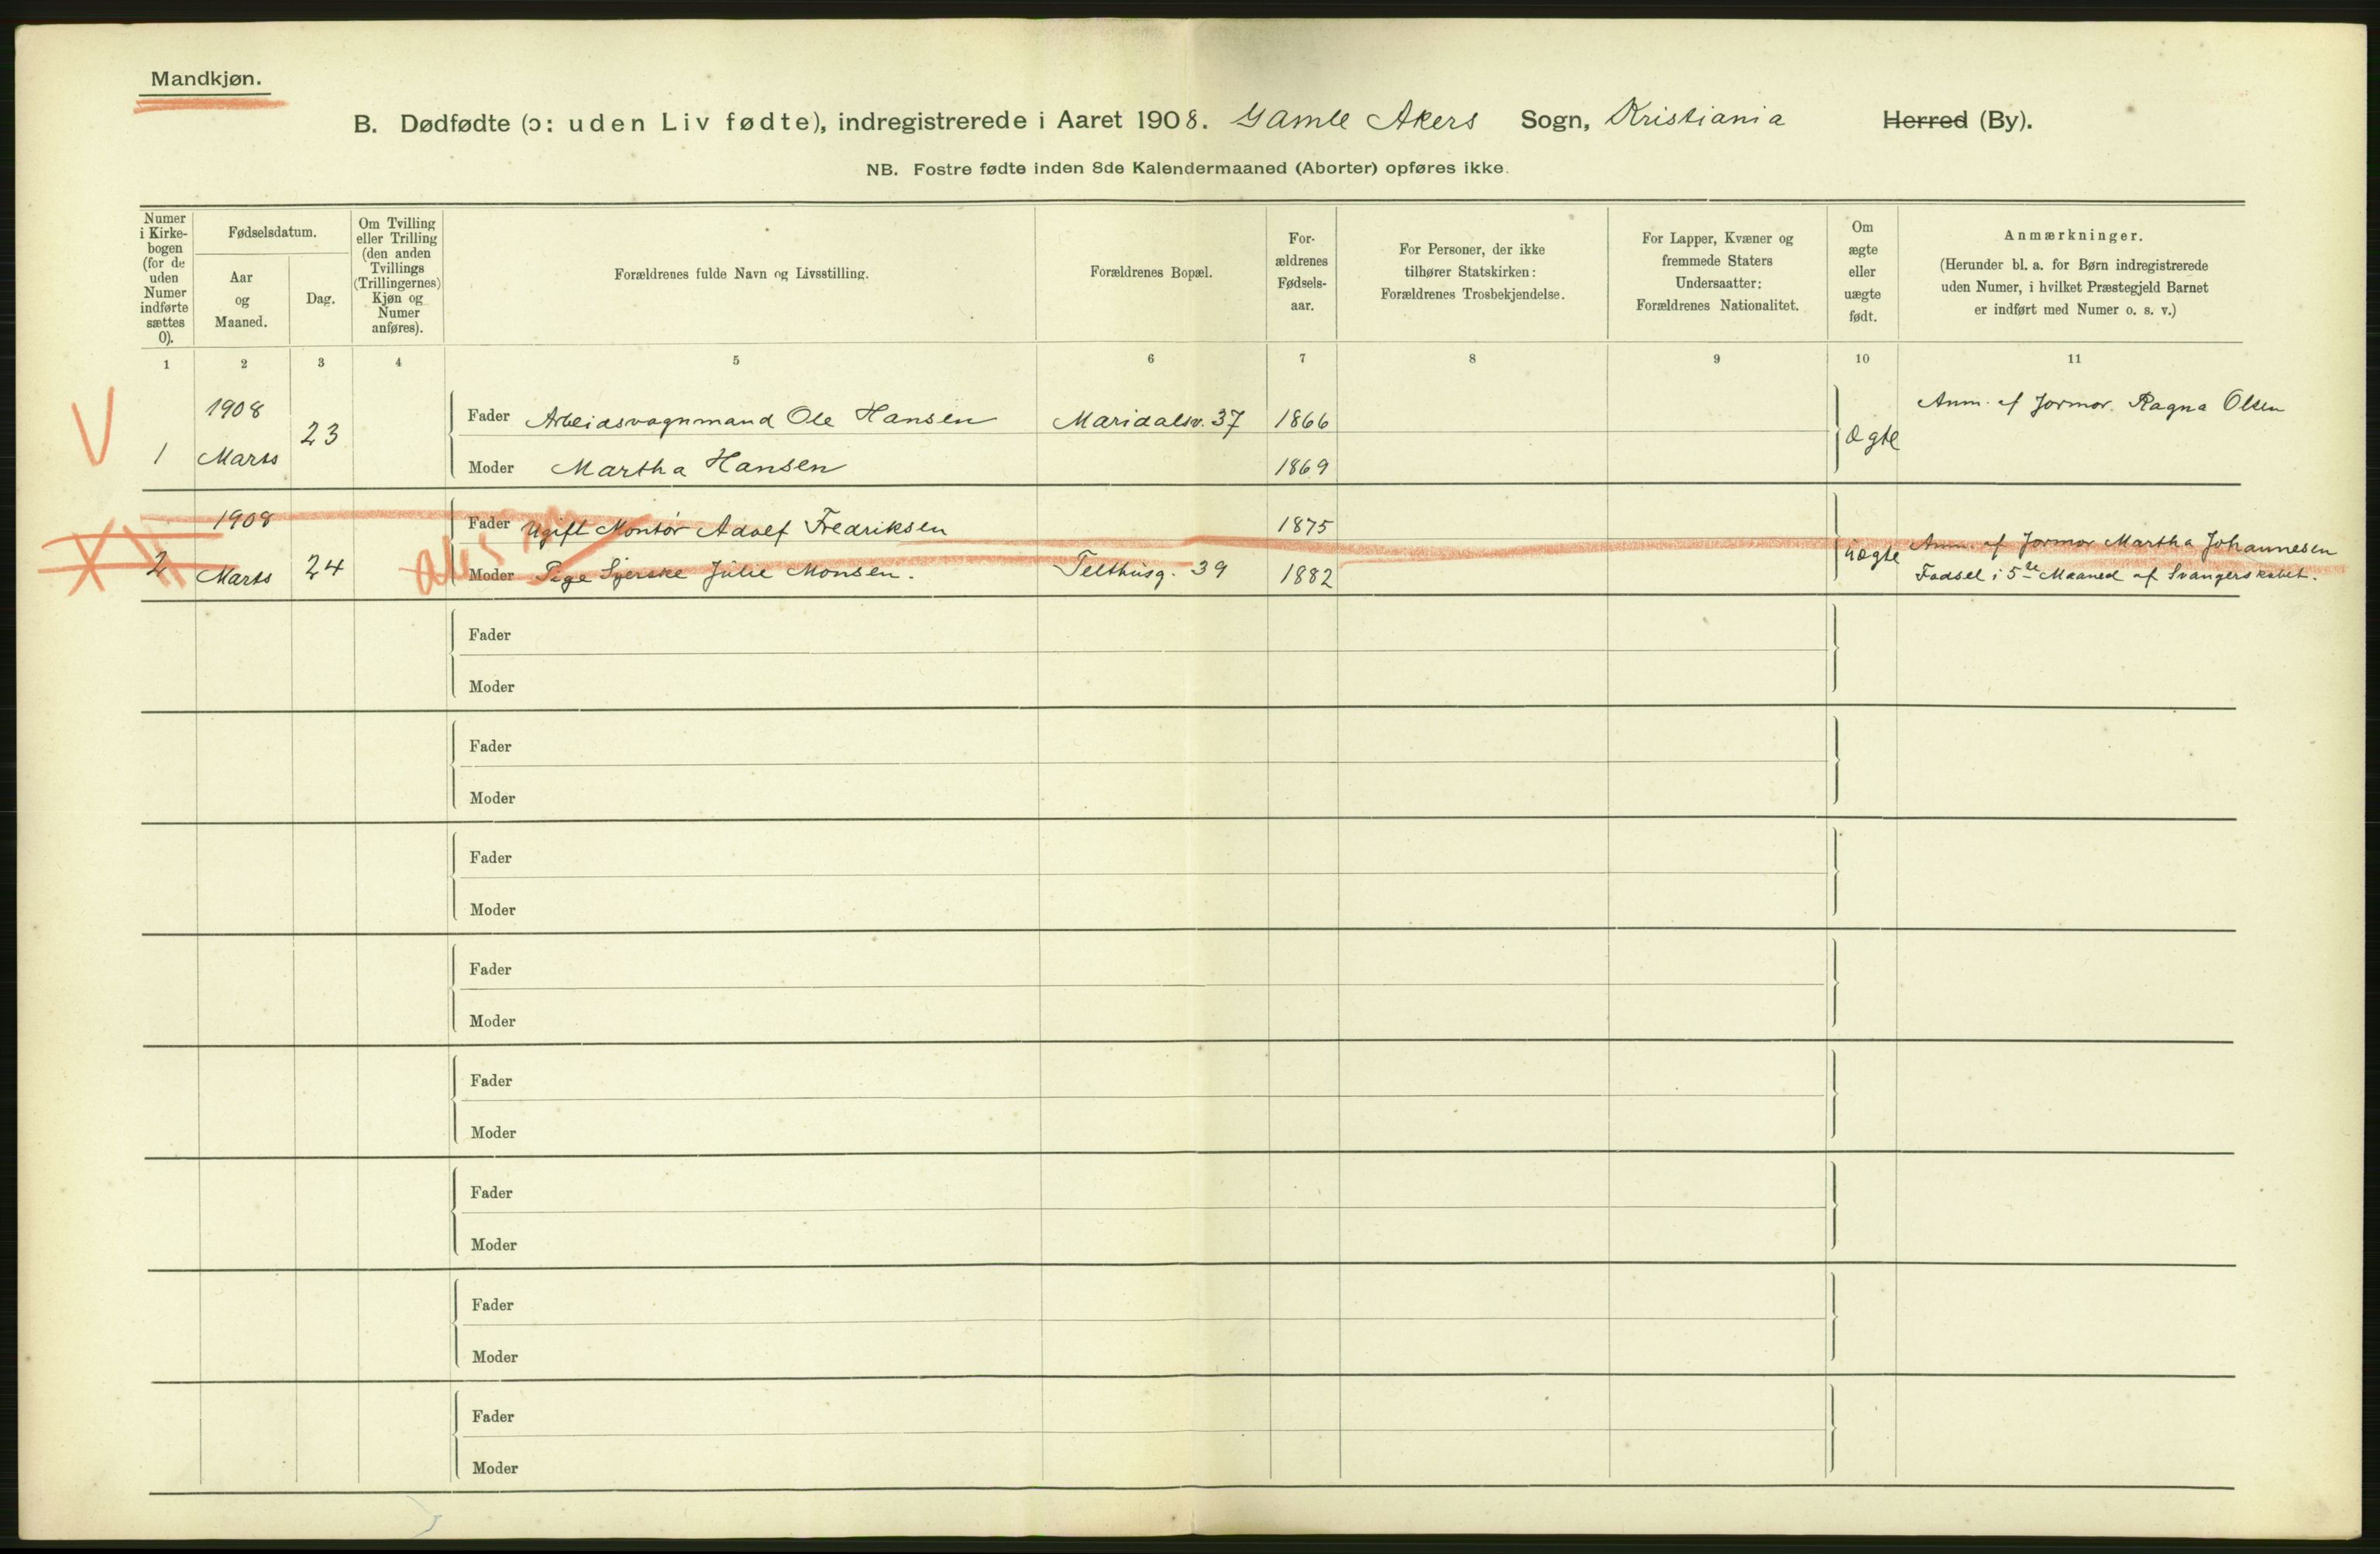 Mandkjøn.
B. Dødfødte (ɔ: uden Liv fødte), indregistrerede i Aaret 1908. Gamle Akers Sogn, Kristiania Herred (By).
NB. Fostre fødte inden 8de Kalendermaaned (Aborter) opføres ikke.
Numer
i Kirke-
bogen
(for de
uden
Numer
indførte
sættes
0).
Fødselsdatum.
Aar
og
Maaned.
Dag.
Om Tvilling
eller Trilling
(den anden
Tvillings
(Trillingernes)
Kjøn og
Numer
anføres).
Forældrenes fulde Navn og Livsstilling.
Forældrenes Bopæl.
For-
ældrenes
Fødsels-
aar.
For Personer, der ikke
tilhører Statskirken:
Forældrenes Trosbekjendelse.
For Lapper, Kvæner og
fremmede Staters
Undersaatter:
Forældrenes Nationalitet.
Om
ægte
eller
uægte
født.
Anmærkninger.
(Herunder bl. a. for Børn indregistrerede
uden Numer, i hvilket Præstegjeld Barnet
er indført med Numer o. s. v.)
1 2 3 4 5 6 7 8 9 10 11
1908 23 Fader Arbeidsvognmand Ole Hansen Maridalsv. 37 1866 Ægte Anm. af Jormor. Ragna Olsen
1 Marts Moder Martha Hansen 1869
1908 Fader Ugift Montør Adolf Fredriksen 1875 Anm. af Jormor Martha Johannesen
2 Marts 24 Moder Pige Syerske Julie Monsen. Telthusg. 39 1882 Uægte Fødsel i 5te Maaned af Svangerskabet.
Fader
Moder
Fader
Moder
Fader
Moder
Fader
Moder
Fader
Moder
Fader
Moder
Fader
Moder
Fader
Moder